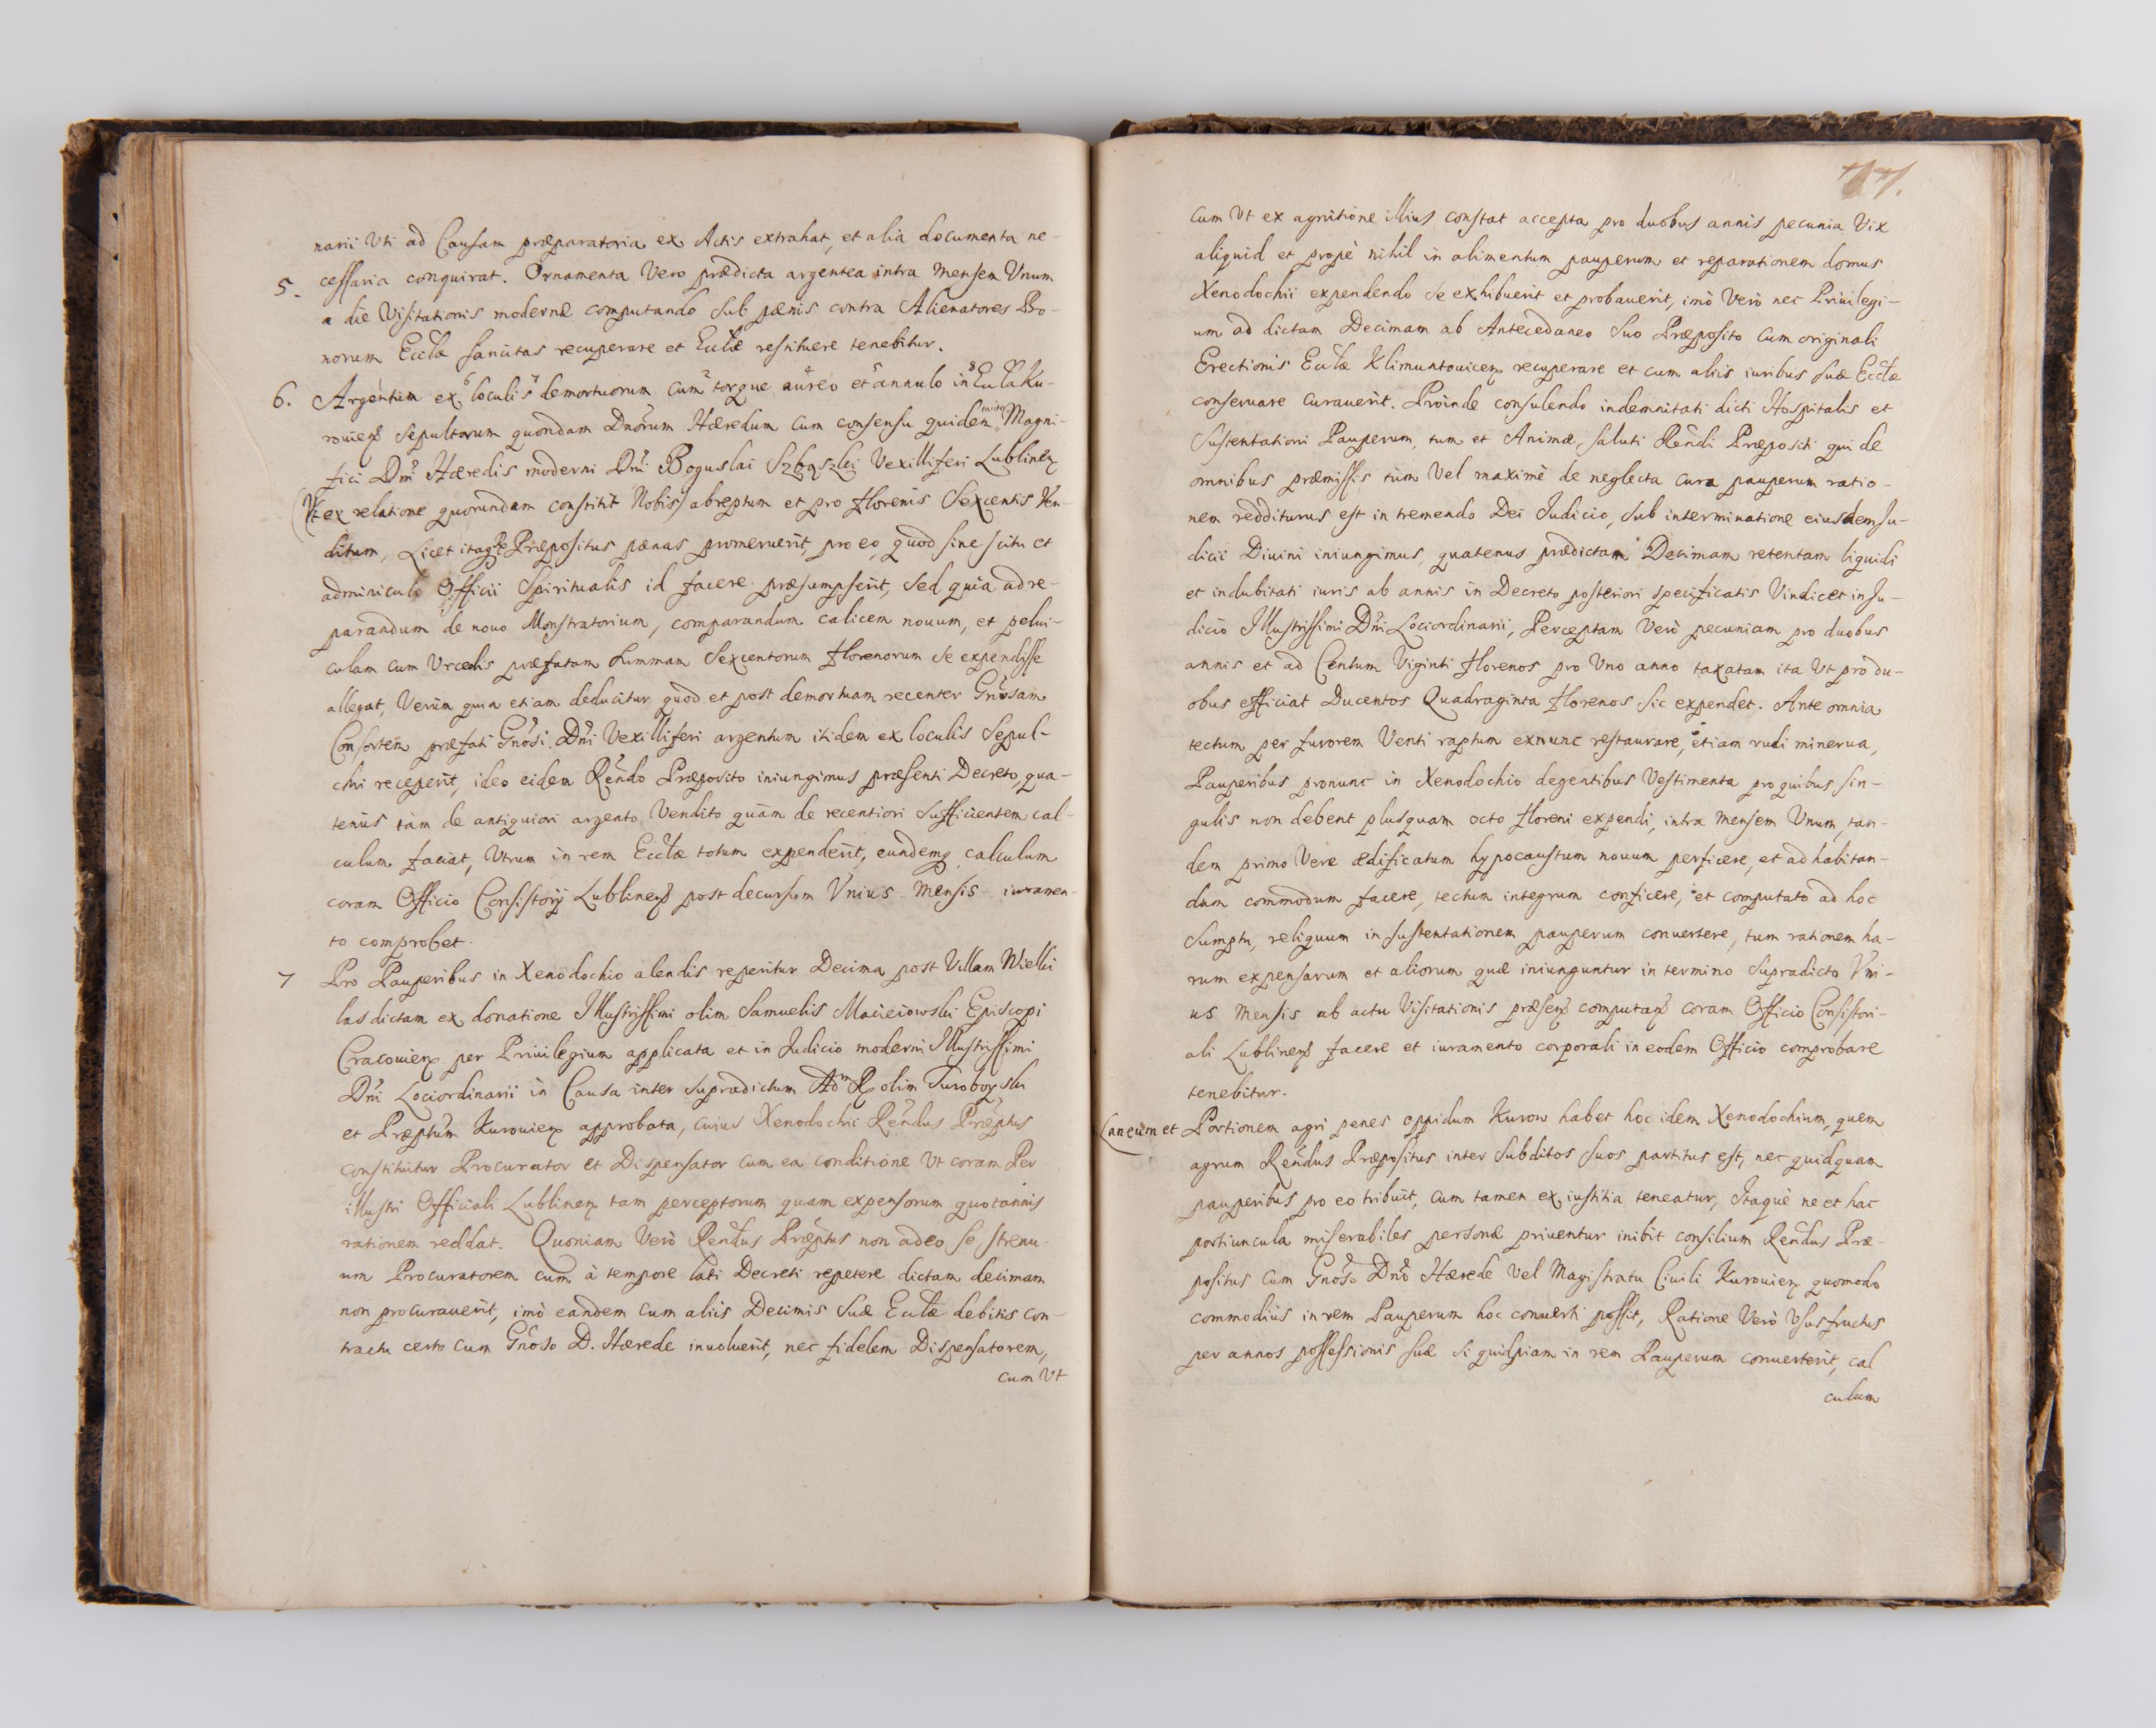 narii Vti ad Causam præparatoria ex Actis extrahat, et alia documenta ne-
5. cessaria conquirat. Ornamenta Vero prædicta argentea intra mensem Vnum
a die Visitationis modernæ computando sub pænis contra Alienatores Bo-
norum Ecclæ sancitas recuperare et Ecclæ restituere tenebitur.
6. Argentum ex loculis demortuorum cum torque aureo et annulo in Eccla Ku-
rouien sepultorum quondam Dnorum Hæredum cum consensu quidem Magni-
fici Dni Hæredis moderni Dni Boguslai Szbąszki Vexilliferi Lublinen
(Vt ex relatione quorundam constitit Nobis) abreptum et pro florenis Sexcentis Ven-
ditum, Licet itaq Præpositus pænas promeruerit, pro eo, quod sine scitu et
adminiculo Officii Spiritualis id facere præsumpserit, sed quia ad re-
parandum de nouo Monstratorium, comparandum calicem nouum, et pelui-
culam cum Vrceolis præfatam summam Sexcentorum florenorum se expendisse
allegat, Verum quia etiam deducitur quod et post demortuam recenter Gnosam
Consortem præfati Gnosi Dni Vexilliferi argentum itidem ex loculis Sepul-
chri receperit, ideo eidem Rendo Præposito iniungimus præsenti Decreto, qua-
tenus tàm de antiquiori argento Vendito quàm de recentiori sufficientem cal-
culum faciat, Vtrum in rem Ecclæ totum expenderit, eundemq calculum
coram Officio Consistorij Lublinen post decursum Vnius Mensis iuramen-
to comprobet.
7 Pro Pauperibus in Xenodochio alendis reperitur Decima post Villam Wielki
las dictam ex donatione Illustrissimi olim Samuelis Macieiowski Episcopi
Cracouien per Priuilegium applicata et in Iudicio moderni Illustrissimi
Dni Lociordinarii in Causa inter supradictum Adm R olim Turoboyski
et Præptum Kurouien approbata, cuius Xenodochii Rendus Præptus
constituitur Procurator et Dispensator cum ea conditione Vt coram Per
illustri Officiali Lublinen tam perceptorum quam expensorum quotannis
rationem reddat. Quoniam Verò Rendus Præptus non adeo se strenu-
um Procuratorem cum à tempore lati Decreti repetere dictam decimam
non procurauerit, imò eandem cum aliis Decimis suæ Ecclæ debitis con-
tractu certo cum Gnoso D. Hærede inuoluerit, nec fidelem Dispensatorem,
cum Vt
cum Vt ex agnitione illius constat accepta pro duobus annis pecunia Vix
aliquid et propè nihil in alimentum pauperum et reparationem domus
Xenodochii expendendo se exhibuerit et probauerit, imò Verò nec Priuilegi-
um ad dictam Decimam ab Antecedaneo suo Præposito cum originali
Erectionis Ecclæ Klimuntouicen recuperare et cum aliis iuribus suæ Ecclæ
conseruare curauerit. Proinde consulendo indemnitati dicti Hospitalis et
sustentationi Pauperum, tum et Animæ, saluti Rendi Præpositi qui de
omnibus præmissis tùm Vel maximè de neglecta cura pauperum ratio-
nem redditurus est in tremendo Dei Iudicio, sub interminatione eiusdem Iu-
dicii Diuini iniungimus, quatenus prædictam Decimam retentam liquidi
et indubitati iuris ab annis in Decreto posteriori specificatis Vindicet in Iu-
dicio Illustrissimi Dni Lociordinarii, Perceptam Verò pecuniam pro duobus
annis et ad Centum Viginti florenos pro Vno anno taxatam ita Vt pro du-
obus efficiat Ducentos Quadraginta florenos sic expendet. Ante omnia
tectum per furorem Venti raptum exnunc restaurare, etiam rudi minerua,
Pauperibus pronunc in Xenodochio degentibus Vestimenta pro quibus sin-
gulis non debent plusquam octo floreni expendi, intra mensem Vnum, tan-
dem primo Vere ædificatum hypocaustum nouum perficere, et ad habitan-
dum commodum facere, tectum integrum conficere, et computato ad hoc
sumptu, reliquum in sustentationem pauperum conuertere, tum rationem ha-
rum expensarum et aliorum quæ iniunguntur in termino supradicto Vni-
us Mensis ab actu Visitationis præsen computan coram Officio Consistori-
ali Lublinen facere et iuramento corporali in eodem Officio comprobare
tenebitur.
Laneum et Portionem agri penes oppidum Kurow habet hoc idem Xenodochium, quem
agrum Rendus Præpositus inter subditos suos partitus est, nec quidquam
pauperibus pro eo tribuit, cum tamen ex iustitia teneatur, Itaquè ne et hac
portiuncula miserabiles personæ priuentur inibit consilium Rendus Præ-
positus cum Gnoso Dno Hærede Vel Magistratu Ciuili Kurouien quomodo
commodiùs in rem Pauperum hoc conuerti possit, Ratione Verò Vsusfructus
per annos possessionis suæ si quidpiam in rem Pauperum conuerterit, cal
culum